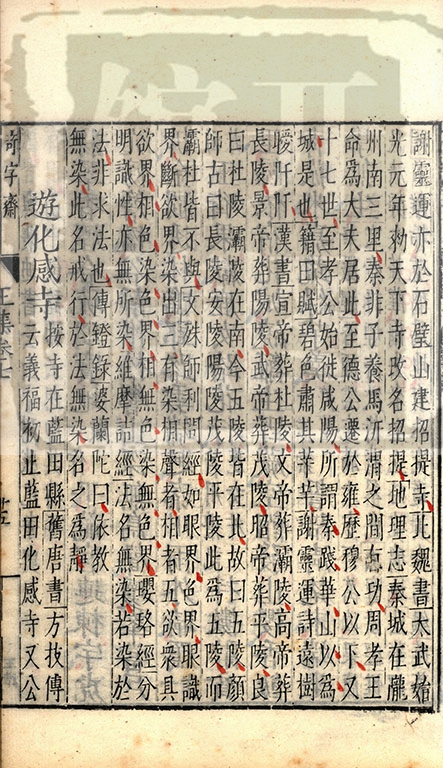 謝靈運亦於石壁山建招提寺北魏書太武始
光元年勅天下寺改名招提地理志秦城在隴
州南三里秦非子養馬汧渭之間有功周孝王
命爲大夫居此至德公遷於雍歷穆公以下又
十七世至孝公始徙咸陽所謂秦踐華山以爲
城是也籍田賦碧色肅其芊芊謝靈運詩遠樹
曖阡阡漢書宣帝葬杜陵文帝葬灞陵高帝葬
長陵景帝葬陽陵武帝葬茂陵昭帝葬平陵良
曰杜陵灞陵在南今五陵皆在北故曰五陵顏
師古曰長陵安陵陽陵茂陵平陵此爲五陵而
灞杜皆不與文殊師利問經如眼界色界眼識
界斷欲界染出三有染相聲有相者五欲衆具
欲界相色染色界相無色染無色界瓔珞經分
明識性亦無所染維摩詰經法名無染若染於
法非求法也傳鐙錄婆蘭陀曰依教
無染此名戒行於法無染名之爲靜
遊化感寺
按寺在藍田縣舊唐書方技傳
云義福初止藍田化感寺又公
奇字齋
王集卷七